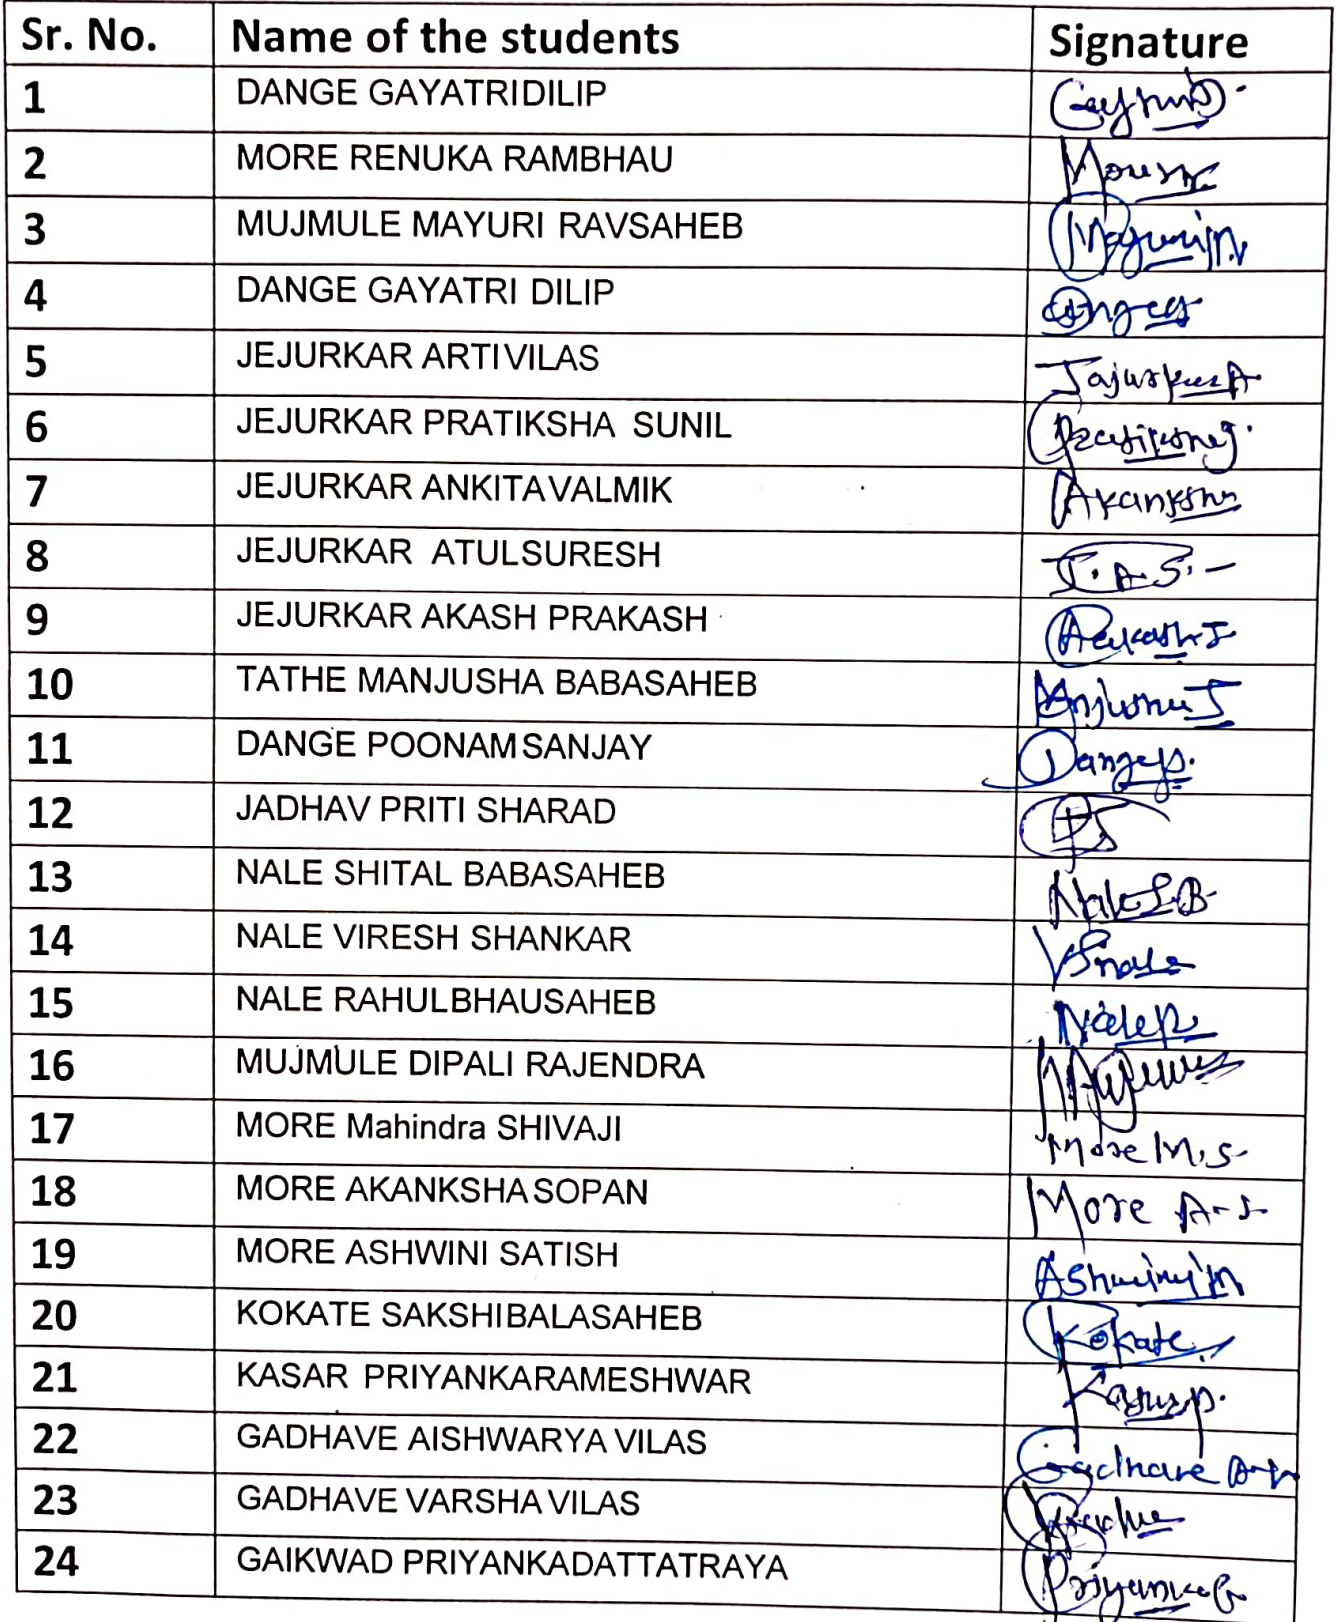 Sr. No. Name of the students Signature
1 DANGE GAYATRIDILIP
2 MORE RENUKA RAMBHAU
3 MUJMULE MAYURI RAVSAHEB Mayuri M.
4 DANGE GAYATRI DILIP
5 JEJURKAR ARTIVILAS
6 JEJURKAR PRATIKSHA SUNIL
7 JEJURKAR ANKITAVALMIK Akanksha
8 JEJURKAR ATULSURESH J.A.S.
9 JEJURKAR AKASH PRAKASH
10 TATHE MANJUSHA BABASAHEB
11 DANGE POONAM SANJAY Dange P.
12 JADHAV PRITI SHARAD
13 NALE SHITAL BABASAHEB Nale S.B.
14 NALE VIRESH SHANKAR
15 NALE RAHULBHAUSAHEB
16 MUJMULE DIPALI RAJENDRA
17 MORE Mahindra SHIVAJI More M.S.
18 MORE AKANKSHA SOPAN More A-S-
19 MORE ASHWINI SATISH Ashwini M
20 KOKATE SAKSHIBALASAHEB Kokate
21 KASAR PRIYANKARAMESHWAR
22 GADHAVE AISHWARYA VILAS Gadhave A-V
23 GADHAVE VARSHA VILAS
24 GAIKWAD PRIYANKADATTATRAYA Priyanka G